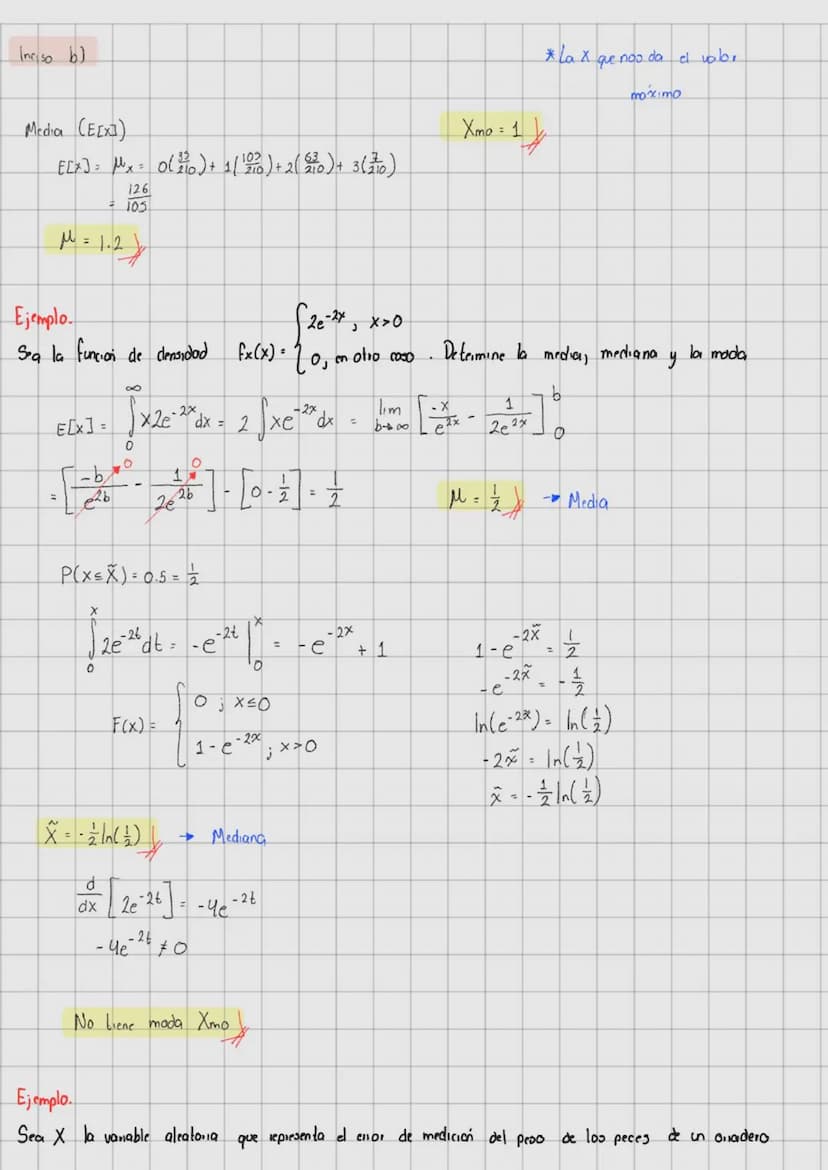 Inciso b)
*La x que nos da el valor
máximo
Media (E[x])
Xmo = 1
E[x] = μx = 0(32/210) + 1(102/210) + 2(63/210) + 3(7/210)
= 126/105
μ = 1.2
Ejemplo.
Sea la función de densidad fx(x) = { 2e^-2x, x>0
0, en otro caso . Determine la media, mediana y la moda
E[x] = ∫₀^∞ x2e^-2x dx = 2 ∫ xe^-2x dx = lim b→∞ [ -x/e^2x - 1/2e^2x ]₀^b
= [ -b/e^2b →0 - 1/2e^2b →0 ] - [0 - 1/2] = 1/2
μ = 1/2 → Media
P(x≤x̃) = 0.5 = 1/2
∫₀^x 2e^-2t dt = -e^-2t |₀^x = -e^-2x + 1
F(x) = { 0 ; x≤0
1-e^-2x ; x>0
1-e^-2x̃ = 1/2
-e^-2x̃ = -1/2
ln(e^-2x̃) = ln(1/2)
-2x̃ = ln(1/2)
x̃ = -1/2 ln(1/2)
x̃ = -1/2 ln(1/2) → Mediana
d/dx [2e^-2t] = -4e^-2t
-4e^-2t ≠ 0
No tiene moda Xmo
Ejemplo.
Sea X la variable aleatoria que representa el error de medición del peso de los peces de un criadero